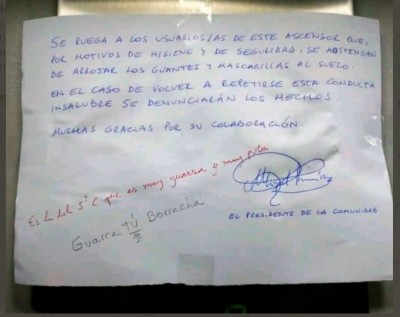 SE RUEGA A LOS USUARIOS/AS DE ESTE ASCENSOR QUE,
POR MOTIVOS DE HIGIENE Y DE SEGURIDAD, SE ABSTENGAN
DE ARROJAR LOS GUANTES Y MASCARILLAS AL SUELO.
EN EL CASO DE VOLVER A REPETIRSE ESTA CONDUCTA
INSALUBRE SE DENUNCIARÁN LOS HECHOS
MUCHAS GRACIAS POR SU COLABORACIÓN
Es la del 5º C que es muy guarra y muy puta
Guarra tú Borracha
EL PRESIDENTE DE LA COMUNIDAD